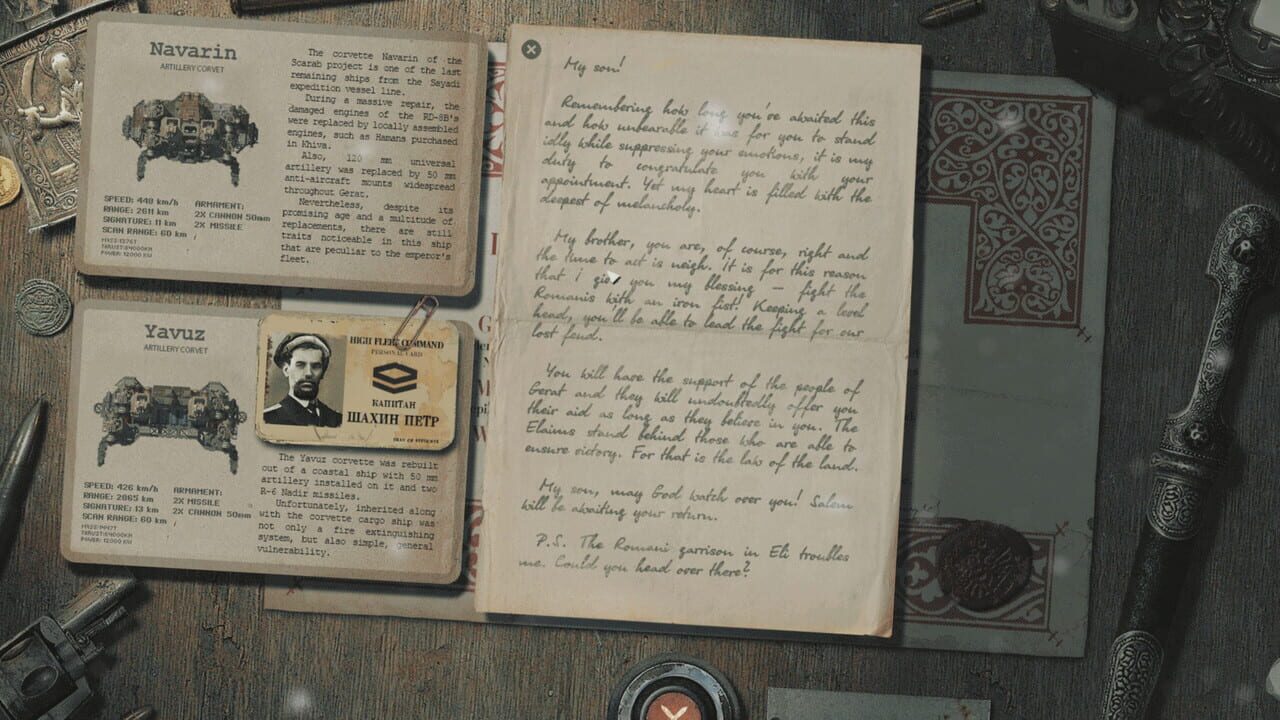 Navarin
ARTILLERY CORVET
SPEED: 440 km/h
RANGE: 2611 km
SIGNATURE: 11 km
SCAN RANGE: 60 km
ARMAMENT:
2X CANNON 50mm
2X MISSILE
The corvette Navarin of the
Scarab project is one of the last
remaining ships from the Sayadi
expedition vessel line.
During a massive repair, the
damaged engines of the RD-8B's
were replaced by locally assembled
engines, such as Hamans purchased
in Khiva.
Also, 120 mm universal
artillery was replaced by 50 mm
anti-aircraft mounts widespread
throughout Gerat.
Nevertheless, despite its
promising age and a multitude of
replacements, there are still
traits noticeable in this ship
that are peculiar to the emperor's
fleet.
Yavuz
ARTILLERY CORVET
HIGH FLEET COMMAND
PERSONAL CARD
КАПИТАН
ШАХИН ПЕТР
SPEED: 426 km/h
RANGE: 2065 km
SIGNATURE: 13 km
SCAN RANGE: 60 km
ARMAMENT:
2X MISSILE
2X CANNON 50mm
The Yavuz corvette was rebuilt
out of a coastal ship with 50 mm
artillery installed on it and two
R-6 Nadir missiles.
Unfortunately, inherited along
with the corvette cargo ship was
not only a fire extinguishing
system, but also simple, general
vulnerability.
My son!
Remembering how long you've awaited this
and how unbearable it was for you to stand
idly while suppressing your emotions, it is my
duty to congratulate you with your
appointment. Yet my heart is filled with the
deepest of melancholy.
My brother, you are, of course, right and
the time to act is neigh. It is for this reason
that I give you my blessing — fight the
Romanis with an iron fist! Keeping a level
head, you'll be able to lead the fight for our
lost feud.
You will have the support of the people of
Gerat and they will undoubtedly offer you
their aid as long as they believe in you. The
Elaims stand behind those who are able to
ensure victory. For that is the law of the land.
My son, may God watch over you! Salem
will be awaiting your return.
P.S. The Romani garrison in Eli troubles
me. Could you head over there?